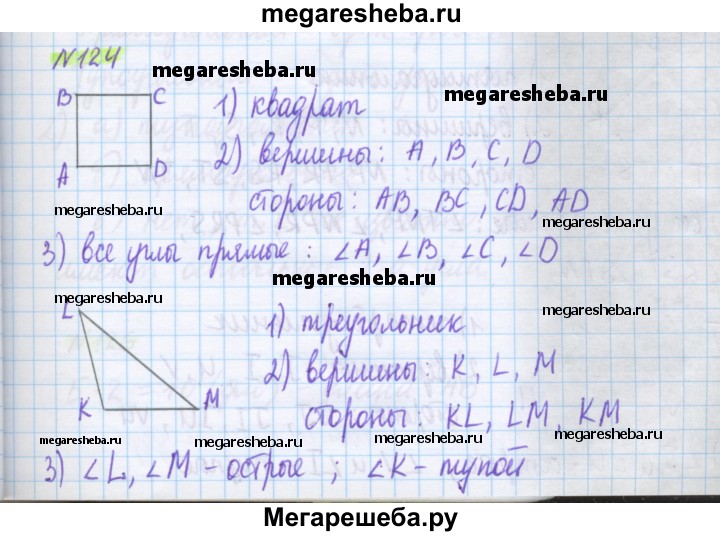 megaresheba.ru
N124
megaresheba.ru
megaresheba.ru
B C
A D
1) квадрат
2) вершины: A, B, C, D
стороны: AB, BC, CD, AD
megaresheba.ru
3) все углы прямые: ∠A, ∠B, ∠C, ∠D
megaresheba.ru
megaresheba.ru
megaresheba.ru
L
K M
1) треугольник
2) вершины: K, L, M
стороны: KL, LM, KM
megaresheba.ru megaresheba.ru megaresheba.ru megaresheba.ru
3) ∠L, ∠M - острые ; ∠K - тупой
Мегарешеба.ру